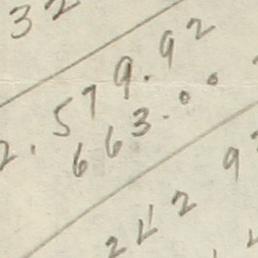 32
2.579.92
663.00
242 9